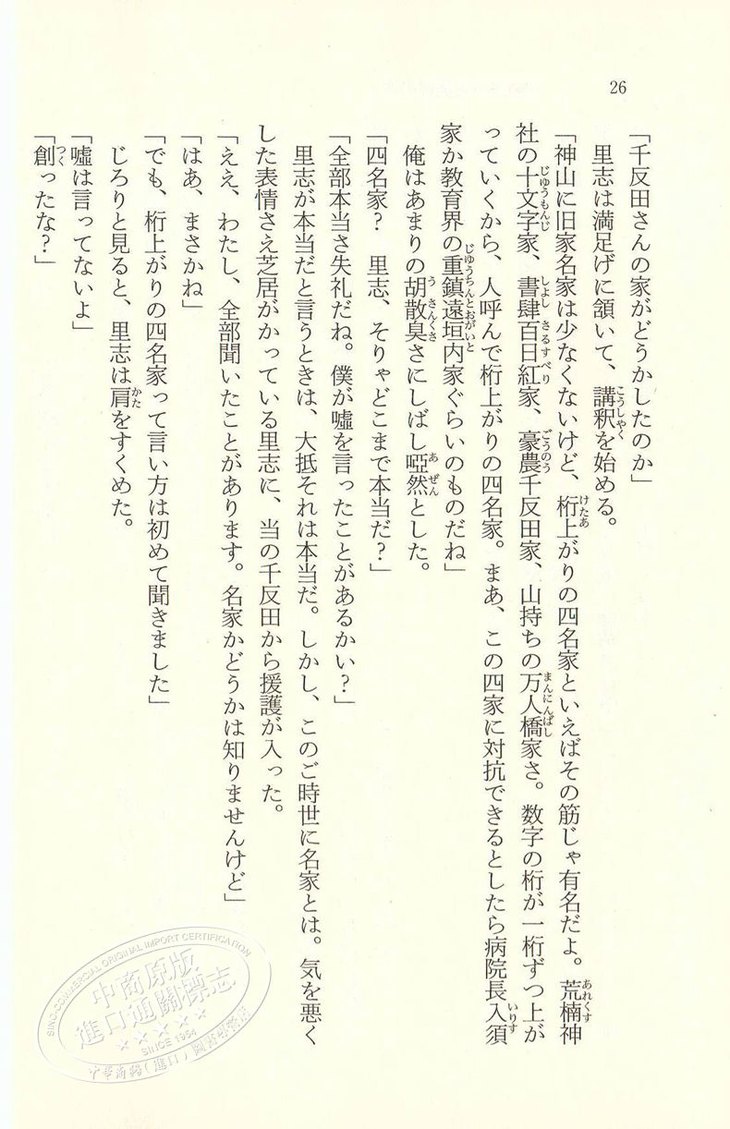 26
「千反田さんの家がどうかしたのか」
里志は満足げに頷いて、講釈を始める。
「神山に旧家名家は少なくないけど、桁上がりの四名家といえばその筋じゃ有名だよ。荒楠神
社の十文字家、書肆百日紅家、豪農千反田家、山持ちの万人橋家さ。数字の桁が一桁ずつ上が
っていくから、人呼んで桁上がりの四名家。まあ、この四家に対抗できるとしたら病院長入須
家か教育界の重鎮遠垣内家ぐらいのものだね」
俺はあまりの胡散臭さにしばし啞然とした。
「四名家?　里志、そりゃどこまで本当だ?」
「全部本当さ失礼だね。僕が嘘を言ったことがあるかい?」
里志が本当だと言うときは、大抵それは本当だ。しかし、このご時世に名家とは。気を悪く
した表情さえ芝居がかっている里志に、当の千反田から援護が入った。
「ええ、わたし、全部聞いたことがあります。名家かどうかは知りませんけど」
「はあ、まさかね」
「でも、桁上がりの四名家って言い方は初めて聞きました」
じろりと見ると、里志は肩をすくめた。
「嘘は言ってないよ」
「創ったな?」
SINO-COMMERCIAL ORIGINAL IMPORT CERTIFICATION
中商原版
進口通關標志
SINCE 1954